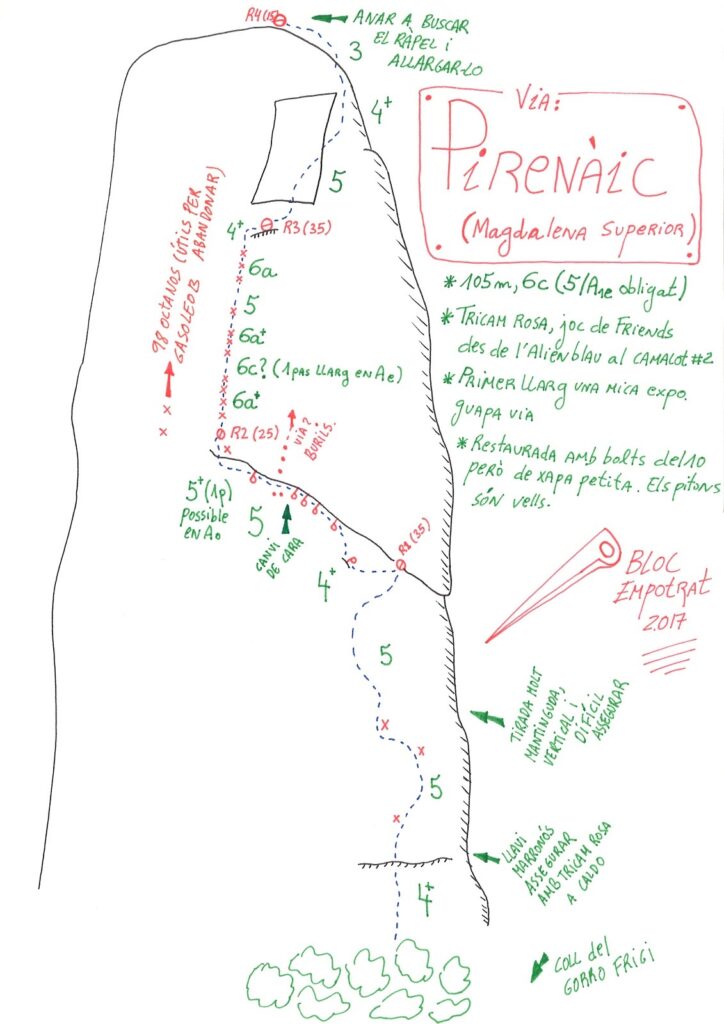 R4(15)
ANAR A BUSCAR
EL RÀPEL i
ALLARGAR-LO
3
4+
VIA:
PIRENÀIC
(MAGDALENA SUPERIOR)
5
98 OCTANOS (ÚTILS PER
GASOLEO B ABANDONAR)
R3(35)
4+
6a
5
6a+
6c? (1 PAS LLARG EN Ae)
6a+
* 105m, 6c (5/A1e obligat)
* TRICAM ROSA, JOC DE FRIENDS
DES DE L'ALIEN BLAU AL CAMALOT #2
* PRIMER LLARG UNA MICA EXPO.
GUAPA VIA
* RESTAURADA AMB bolts del 10
PERÒ DE XAPA PETITA. Els PITONS
SÓN VELLS.
R2(25)
VIA?
BURILS.
5+(1p)
Possible
en A0
5
CANVI
DE CARA
R1(35)
4+
BLOC
EMPOTRAT
2.017
5
TIRADA MOLT
MANTINGUDA,
VERTICAL i
DIFÍCIL
ASSEGURAR
5
LLAVI
MARRONÓS
ASSEGURAR
AMB TRICAM ROSA
A CALDO
4+
COLL del
GORRO FRIGI